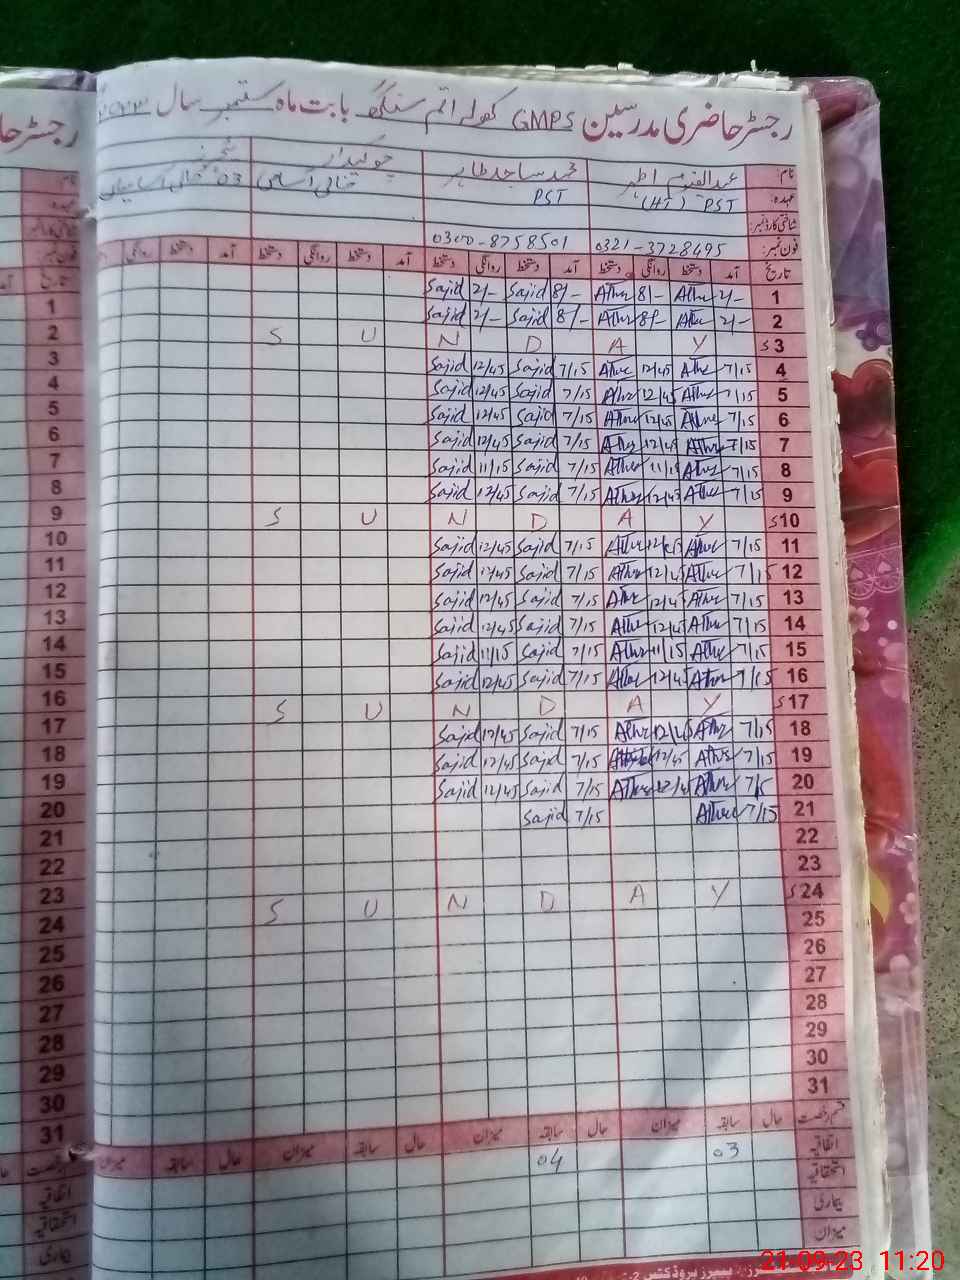 رجسٹر حاضری مدرسین GMPS کھولہ اتم سنگھ بابت ماہ ستمبر سال
نام: عبدالقیوم اطہر محمد ساجد طاہر چوکیدار
عہدہ: PST (HT) PST خالی اسامی 03 خالی اسامیاں
شناختی کارڈ نمبر:
فون نمبر: 0321-3728495 0300-8758501
تاریخ آمد دستخط روانگی دستخط آمد دستخط روانگی دستخط آمد دستخط روانگی دستخط آمد دستخط روانگی
1 2/- Ather 8/- Ather 8/- Sajid 2/- Sajid
2 2/- Ather 8/- Ather 8/- Sajid 2/- Sajid
S 3 S U N D A Y
4 7/15 Ather 12/45 Ather 7/15 Sajid 12/45 Sajid
5 7/15 Ather 12/45 Ather 7/15 Sajid 12/45 Sajid
6 7/15 Ather 12/45 Ather 7/15 Sajid 12/45 Sajid
7 7/15 Ather 12/45 Ather 7/15 Sajid 12/45 Sajid
8 7/15 Ather 11/15 Ather 7/15 Sajid 11/15 Sajid
9 7/15 Ather 12/45 Ather 7/15 Sajid 12/45 Sajid
S 10 S U N D A Y
11 7/15 Ather 12/45 Ather 7/15 Sajid 12/45 Sajid
12 7/15 Ather 12/45 Ather 7/15 Sajid 12/45 Sajid
13 7/15 Ather 12/45 Ather 7/15 Sajid 12/45 Sajid
14 7/15 Ather 12/45 Ather 7/15 Sajid 12/45 Sajid
15 7/15 Ather 11/15 Ather 7/15 Sajid 11/15 Sajid
16 7/15 Ather 12/45 Ather 7/15 Sajid 12/45 Sajid
S 17 S U N D A Y
18 7/15 Ather 12/45 Ather 7/15 Sajid 12/45 Sajid
19 7/15 Ather 12/45 7/15 Sajid 12/45 Sajid
20 7/15 Ather 12/45 Ather 7/15 Sajid 12/45 Sajid
21 7/15 Ather 7/15 Sajid
22
23
S 24 S U N D A Y
25
26
27
28
29
30
31
قسم رخصت حال سابقہ میزان حال سابقہ میزان حال سابقہ میزان حال سابقہ میزان
اتفاقیہ 03 04
استحقاقیہ
بیماری
میزان
رجسٹر حا
نام
عہدہ
تاریخ آمد
1
2
3
4
5
6
7
8
9
10
11
12
13
14
15
16
17
18
19
20
21
22
23
24
25
26
27
28
29
30
31
قسم رخصت حال
اتفاقیہ
استحقاقیہ
بیماری
21-09-23 11:20